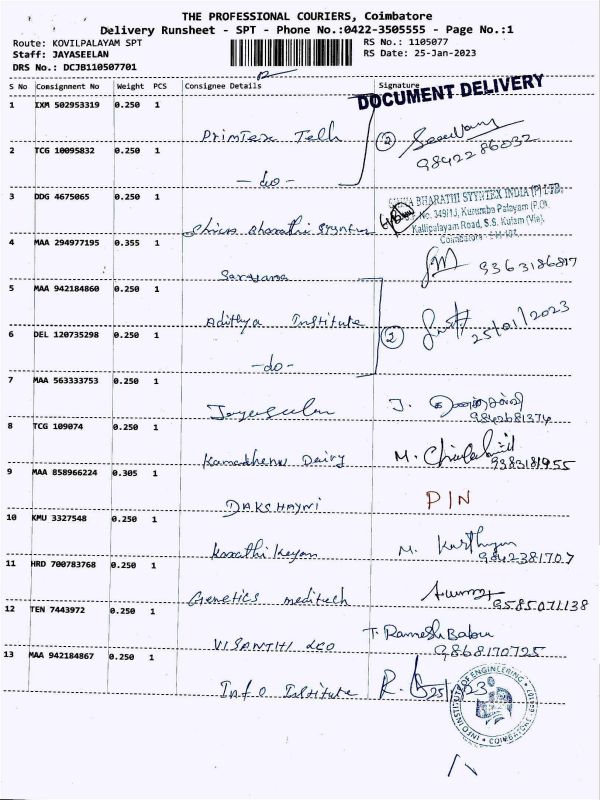 THE PROFESSIONAL COURIERS, Coimbatore
Delivery Runsheet - SPT - Phone No.:0422-3505555 - Page No.:1
Route: KOVILPALAYAM SPT
RS No.: 1105077
Staff: JAYASEELAN
RS Date: 25-Jan-2023
DRS No.: DCJB110507701
S No Consignment No Weight PCS Consignee Details Signature
DOCUMENT DELIVERY
1 IXM 502953319 0.250 1
Primtex Tech 2
9842286032
2 TCG 10095832 0.250 1
- do -
3 DDG 4675065 0.250 1
BHARATHI SYYNTEX INDIA (P) LTD.
No. 349/1J, Kurumba Palayam (P.O),
Kalipalayam Road, S.S. Kulam (Via),
Shiva Bharathi Syyntex
4 MAA 294977195 0.355 1
Saravana 9363186817
5 MAA 942184860 0.250 1
Adithya Institute 2 25/01/2023
6 DEL 120735298 0.250 1
- do -
7 MAA 563333753 0.250 1
Jayaseelan J.
9842681374
8 TCG 109074 0.250 1
Kamadhenu Dairy M.
9383181955
9 MAA 858966224 0.305 1
DAKSHAYNI PIN
10 KMU 3327548 0.250 1
Karathikeyan M. Karthyan
9842381707
11 HRD 700783768 0.250 1
Genetics meditech
9585071138
12 TEN 7443972 0.250 1
T. Ramesh Babu
9868170725
13 MAA 942184867 0.250 1
Info Institute R.
INFO INSTITUTE OF ENGINEERING
COIMBATORE